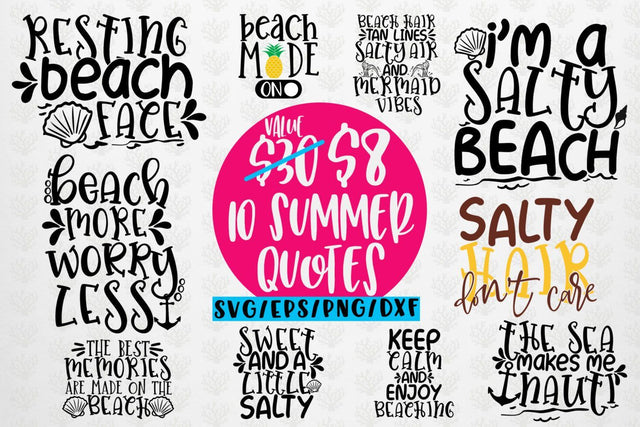 RESTING
beach
FACE
beach
MODE
ON
BEACH HAIR
TAN LINES
SALTY AIR
AND
MERMAID
VIBES
i'm a
SALTY
BEACH
VALUE
$30 $8
10 SUMMER
QUOTES
SVG/EPS/PNG/DXF
beach
MORE
WORRY
LESS
SALTY
HAIR
don't care
THE BEST
MEMORIES
ARE MADE ON THE
BEACH
SWEET
AND A
LITTLE
SALTY
KEEP
CALM
AND
ENJOY
BEACHING
THE SEA
makes me
NAUTI